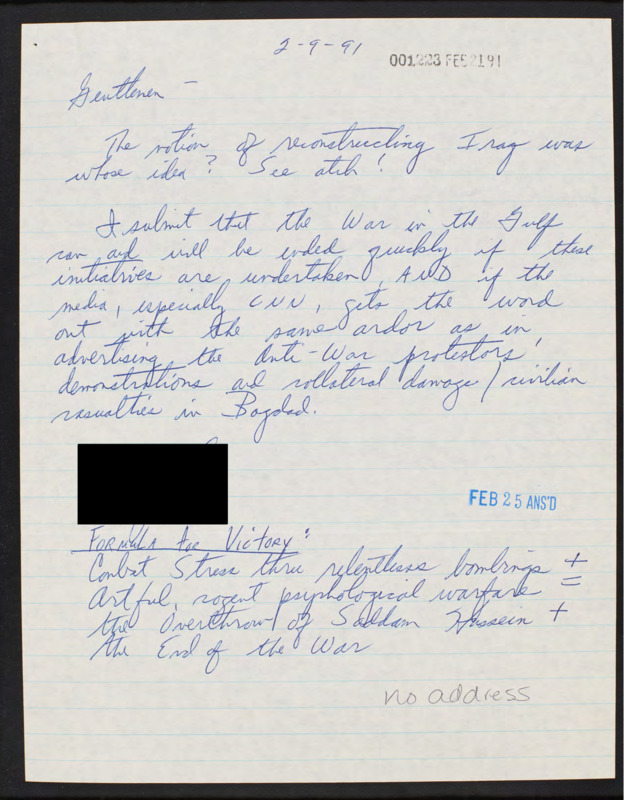 2-9-91
001323 FEB 21 91
Gentlemen —
The notion of reconstructing Iraq was
whose idea? See atch!
I submit that the War in the Gulf
can and will be ended quickly if these
initiatives are undertaken, AND if the
media, especially CNN, gets the word
out with the same ardor as in
advertising the Anti-War protestors'
demonstrations and collateral damage/civilian
casualties in Bagdad.
FEB 25 ANS'D
FORMULA FOR VICTORY:
Combat Stress thru relentless bombings +
Artful, cogent psychological warfare =
the Overthrow of Saddam Hussein +
the End of the War
no address